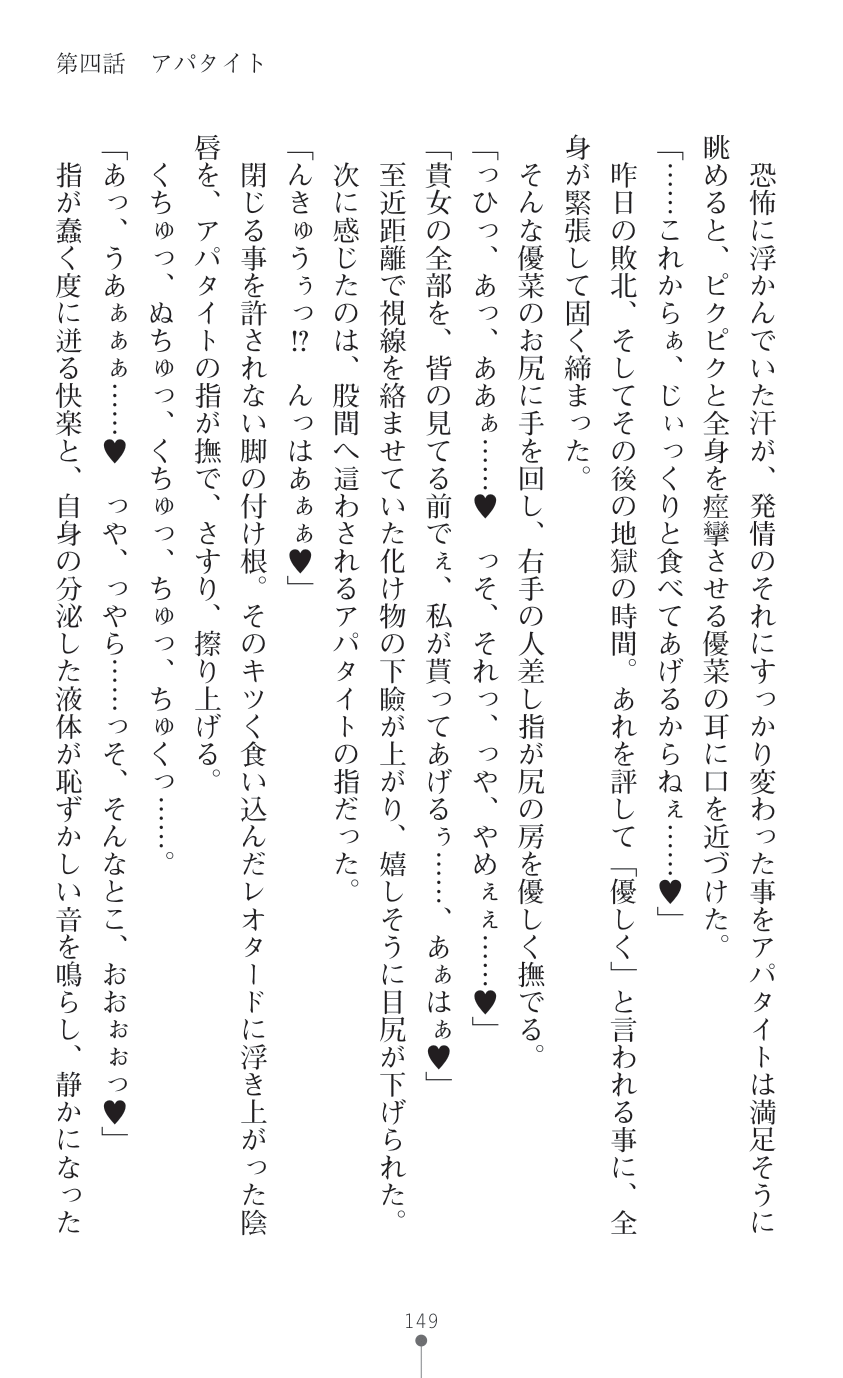 第四話　アパタイト
　恐怖に浮かんでいた汗が、発情のそれにすっかり変わった事をアパタイトは満足そうに
眺めると、ピクピクと全身を痙攣させる優菜の耳に口を近づけた。
「……これからぁ、じぃっくりと食べてあげるからねぇ……♥」
　昨日の敗北、そしてその後の地獄の時間。あれを評して「優しく」と言われる事に、全
身が緊張して固く締まった。
　そんな優菜のお尻に手を回し、右手の人差し指が尻の房を優しく撫でる。
「っひっ、あっ、ああぁ……♥　っそ、それっ、っや、やめぇぇ……♥」
「貴女の全部を、皆の見てる前でぇ、私が貰ってあげるぅ……、あぁはぁ♥」
　至近距離で視線を絡ませていた化け物の下瞼が上がり、嬉しそうに目尻が下げられた。
　次に感じたのは、股間へ這わされるアパタイトの指だった。
「んきゅうぅっ!?　んっはあぁぁ♥」
　閉じる事を許されない脚の付け根。そのキツく食い込んだレオタードに浮き上がった陰
唇を、アパタイトの指が撫で、さすり、擦り上げる。
　くちゅっ、ぬちゅっ、くちゅっ、ちゅっ、ちゅくっ……。
「あっ、うあぁぁぁ……♥　っや、っやら……っそ、そんなとこ、おおぉぉっ♥」
　指が蠢く度に迸る快楽と、自身の分泌した液体が恥ずかしい音を鳴らし、静かになった
149